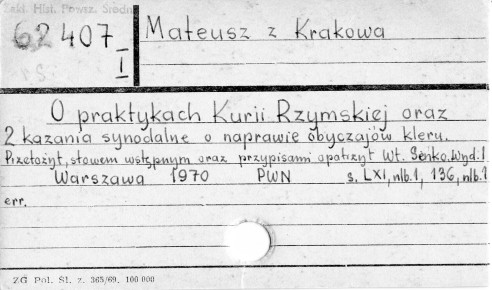 Zakł. Hist. Powsz. Średn.
62407 I
Mateusz z Krakowa
O praktykach Kurii Rzymskiej oraz
2 kazania synodalne o naprawie obyczajów kleru.
Przełożył, słowem wstępnym oraz przypisami opatrzył Wł. Seńko. Wyd. 1
Warszawa 1970 PWN s. LXI, nlb. 1, 136, nlb. 1
err.
ZG Pol. Śl. z. 365/69, 100 000